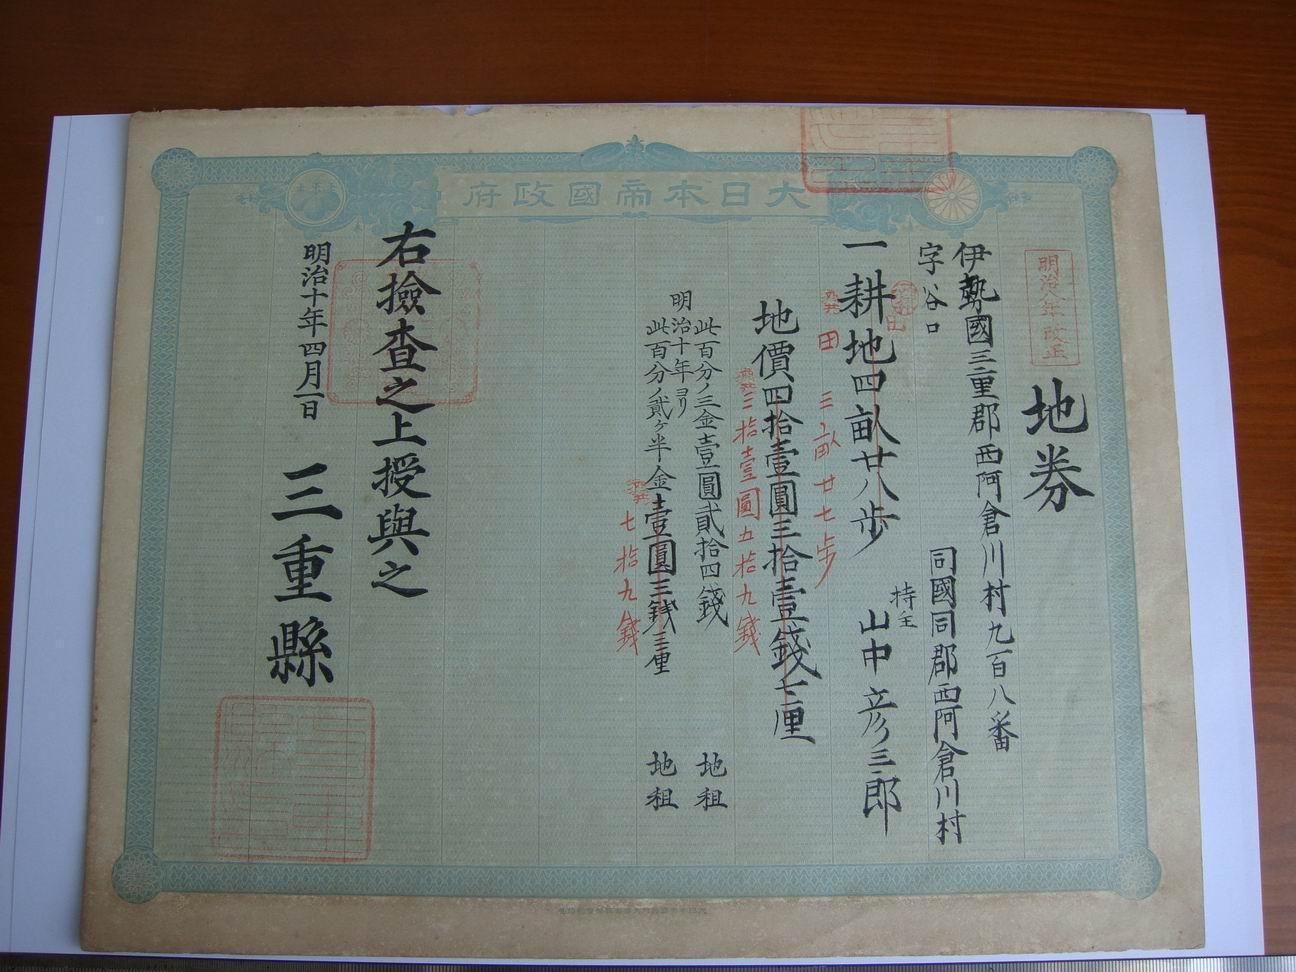 大日本帝國政府
明治八年改正
地券
伊勢國三重郡西阿倉川村九百八番
字谷口
同國同郡西阿倉川村
持主
山中彦三郎
一耕地四畝廿八歩
田 三畝廿七歩
地價四拾壹圓三拾壹錢七厘
三拾壹圓五拾九錢
此百分ノ三金壹圓貳拾四錢 地租
明治十年ヨリ
此百分ノ貳ヶ半金壹圓三錢三厘 地租
七拾九錢
右撿査之上授與之
明治十年四月一日
三重縣